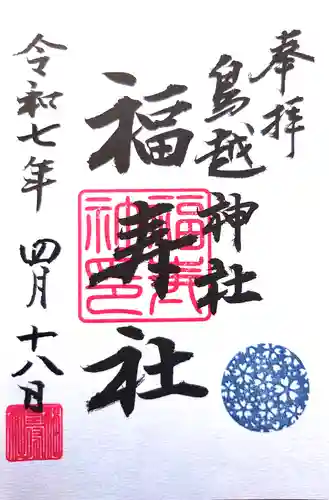 奉拝
鳥越神社
福寿社
令和七年
四月十八日